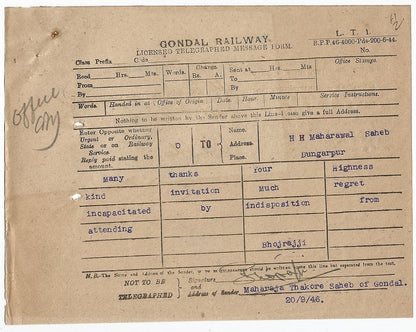 GONDAL RAILWAY.
LICENSED TELEGRAPHED MESSAGE FORM.
L. T. 1.
B.P.P.46-4000-Pds-200-6-44.
Class Prefix Code
No.
Recd Hrs. Mts
From
By
Words.
Charge.
Rs. A.
Sent at Hrs. Mts
To
By
Office Stamps.
Words. Handed in at (Office of Origin Date Hour Minute Service Instructions.
Nothing to be written by the Sender above this Line—Please give a full Address.
Enter Opposite whether
Urgent or Ordinary,
State or on Railway
Service.
Reply paid stating the
amount.
O
TO
Name. H H Maharawal Saheb
Address.
Place. Dungarpur
Many thanks Your Highness
kind invitation Much regret
incapacitated by indisposition from
attending
Bhojrajji
NOT TO BE
TELEGRAPHED
Signature
and
Address of Sender
Maharaja Thakore Saheb of Gondal.
20/9/46.
office